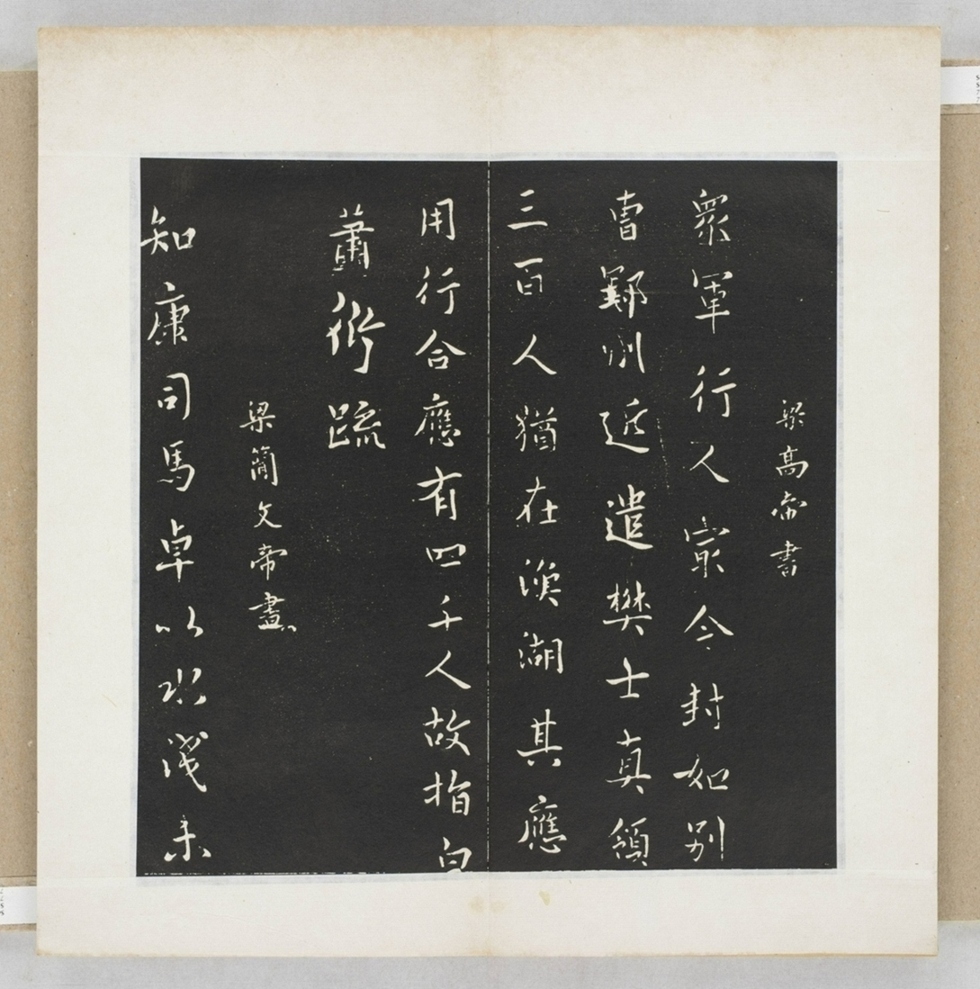 梁高帝書
眾軍行人寂今封如別
曹鄭州近遣樊士真領
三百人猶在漢湖其應
用行合應有四千人故指白
蕭衍疏
梁簡文帝書
知康司馬卓以水淺未